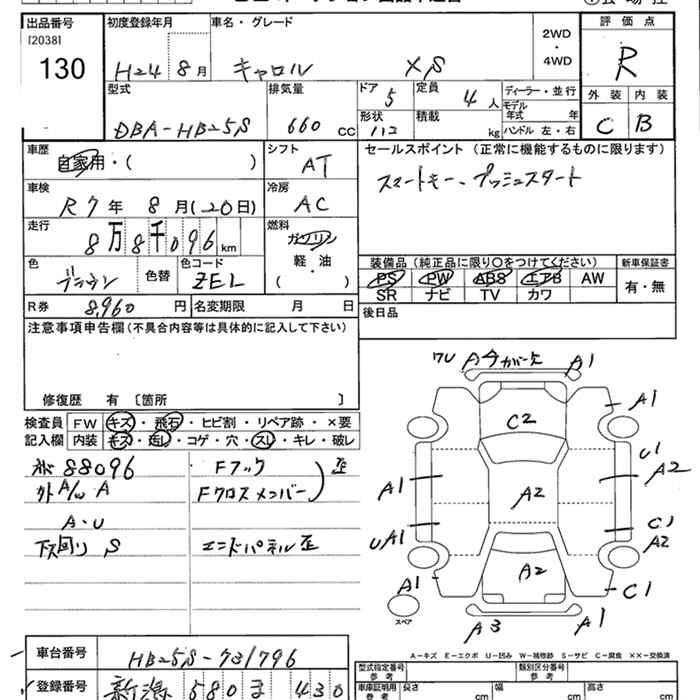 出品番号 初度登録年月 車名・グレード 2WD ・ 4WD 評価点
[2038]
130 H24年 8月 キャロル XS R
型式 排気量 ドア 5 定員 4人 ディーラー・並行 外装 内装
DBA-HB25S 660 CC 形状 積載 kg モデル年式 年 ハンドル 左・右 C B
車歴 自家用・( ) シフト AT セールスポイント(正常に機能するものに限ります)
車検 R7年 8月(20日) 冷房 AC スマートキー、プッシュスタート
走行 8万8千096km 燃料 ガソリン 軽・油 ( )
色 ブラウン 色替 色コード ZEL 装備品(純正品に限り○をつけてください) 新車保証書
PS PW ABS エアB AW 有・無
SR ナビ TV カワ
R券 8,960円 名変期限 月 日 後日品
注意事項申告欄(不具合内容等は具体的に記入して下さい)
修復歴 有 〔箇所 〕
検査員 FW キズ・飛石・ヒビ割・リペア跡・×要
記入欄 内装 キズ・汚レ・コゲ・穴・スレ・キレ・破レ
88096 Fフック 歪
外A/W A Fクロスメンバー
A・U
下廻り S エンドパネル歪
ワレ A4 ガバ欠 A1
A1
C2
U1
A1 A2 A2
C1
UA1 A2
A1 A2 C1
スペア
A3 A1
A-キズ E-エクボ U-凹み W-補修跡 S-サビ C-腐食 XX-交換済
車台番号 HB25S-731796
登録番号 新潟 580 ま 430
型式指定番号 参考 類別区分番号 参考
車庫証明用 参考 長さ cm 幅 cm 高さ cm